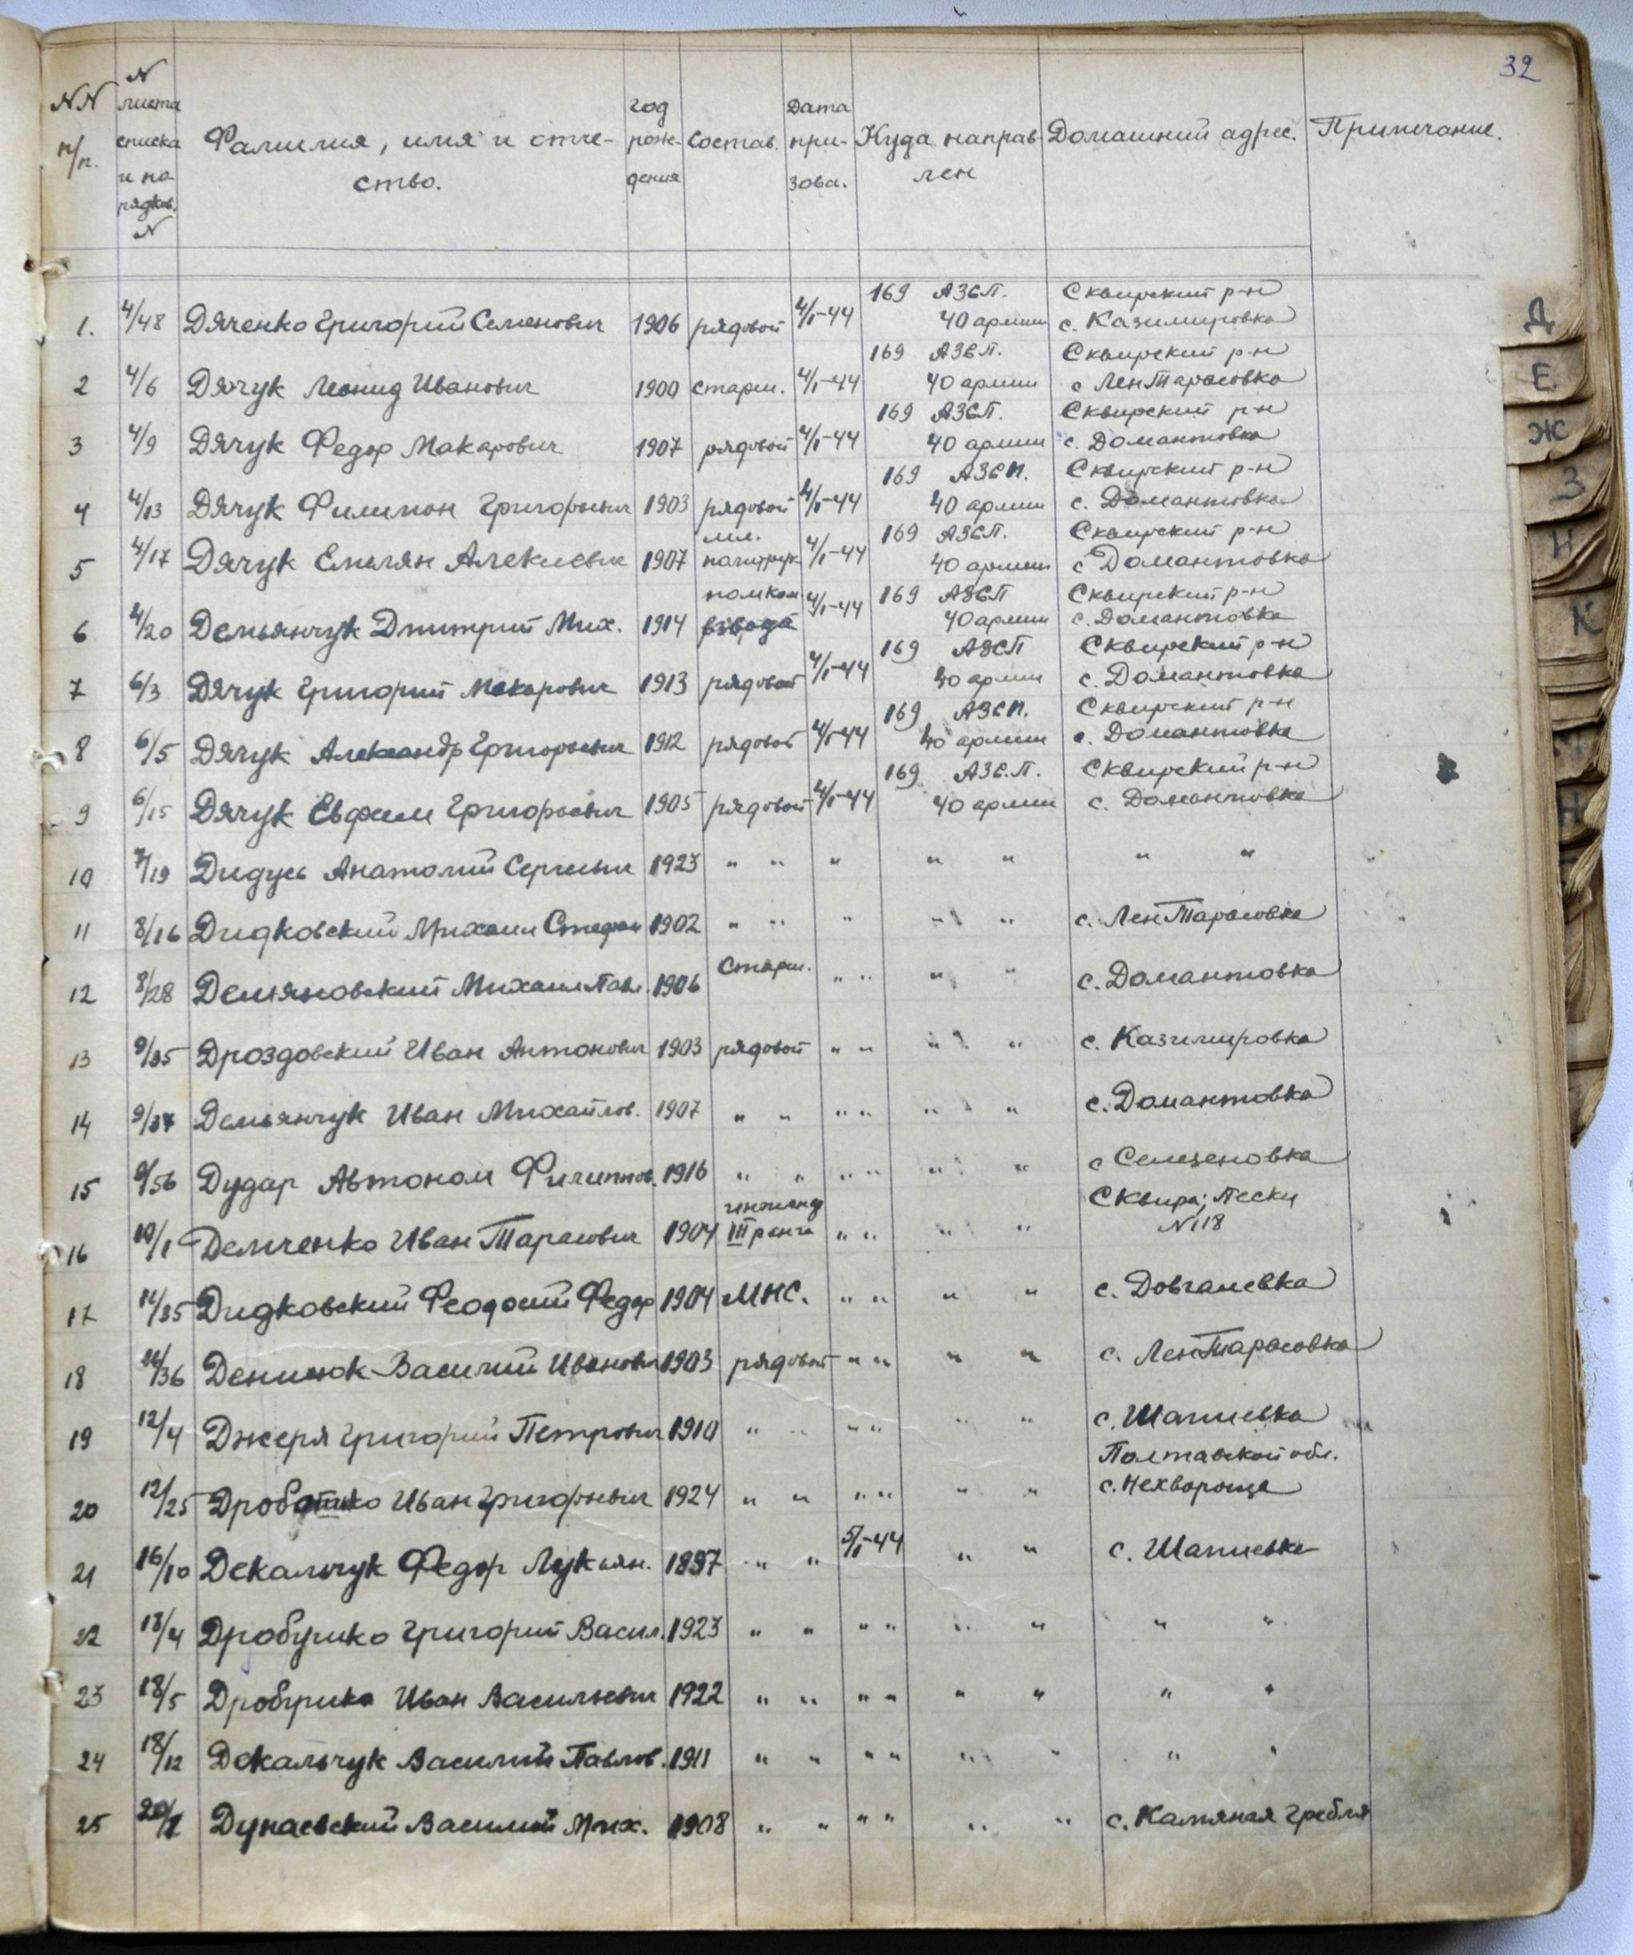 32
NN п/п. | N листа списка и порядков. N | Фамилия, имя и отчество. | год рождения | Состав. | Дата призова. | Куда направлен | Домашний адрес. | Примечание.
1. 4/48 Дяченко Григорий Семенович 1906 рядовой 4/I-44 169 АЗСП. 40 армии Сквирский р-н с. Казимировка
2 4/6 Дячук Леонид Иванович 1900 старш. 4/I-44 169 АЗСП. 40 армии Сквирский р-н с ЛенТарасовка
3 4/9 Дячук Федор Макарович 1907 рядовой 4/I-44 169 АЗСП. 40 армии Сквирский р-н с. Домантовка
4 4/13 Дячук Филимон Григорьевич 1903 рядовой 4/I-44 169 АЗСП. 40 армии Сквирский р-н с. Домантовка
5 4/17 Дячук Емелян Алексеевич 1907 мл. политрук 4/I-44 169 АЗСП. 40 армии Сквирский р-н с Домантовка
6 4/20 Демьянчук Дмитрий Мих. 1914 помком взвода 4/I-44 169 АЗСП 40 армии Сквирский р-н с. Домантовка
7 6/3 Дячук Григорий Макарович 1913 рядовой 4/I-44 169 АЗСП 40 армии Сквирский р-н с. Домантовка
8 6/5 Дячук Александр Григорьевич 1912 рядовой 4/I-44 169 АЗСП. 40 армии Сквирский р-н с. Домантовка
9 6/15 Дячук Евфим Григорьевич 1905 рядовой 4/I-44 169 АЗС.П. 40 армии Сквирский р-н с. Домантовка
10 7/19 Дидусь Анатолий Сергеевич 1923 " " " " " " "
11 8/16 Дидковский Михаил Стефан 1902 " " " " " с. ЛенТарасовка
12 8/28 Демяновский Михаил Павл. 1906 Старш. " " " " с. Домантовка
13 9/35 Дроздовский Иван Антонович 1903 рядовой " " " " с. Казимировка
14 9/37 Демьянчук Иван Михайлов. 1907 " " " " " " с. Домантовка
15 9/56 Дудар Автоном Филиппов. 1916 " " " " " " с Селезеновка
16 10/1 Демченко Иван Тарасович 1904 интенд III ранга " " " " Сквира, Пески N118
17 11/35 Дидковский Феодосий Федор 1904 МНС. " " " " с. Довгалевка
18 11/36 Денисюк Василий Иванович 1903 рядовой " " " " с. ЛенТарасовка
19 12/4 Джеря Григорий Петрович 1910 " " " " " " с. Шапиевка
20 12/25 Иван Григорьевич 1924 " " " " " " Полтавской обл. с. Нехвороща
21 16/10 Декальчук Федор Лукьян. 1897 " " 5/I-44 " " с. Шапиевка
22 18/4 Дробушко Григорий Васил. 1923 " " " " " " " "
23 18/5 Дробушко Иван Васильевич 1922 " " " " " " " "
24 18/12 Декальчук Василий Павлов. 1911 " " " " " " " "
25 Дунаевский Василий Мих. 1908 " " " " " " с. Камяная Гребля
Д
Е
Ж
З
И
К
Н